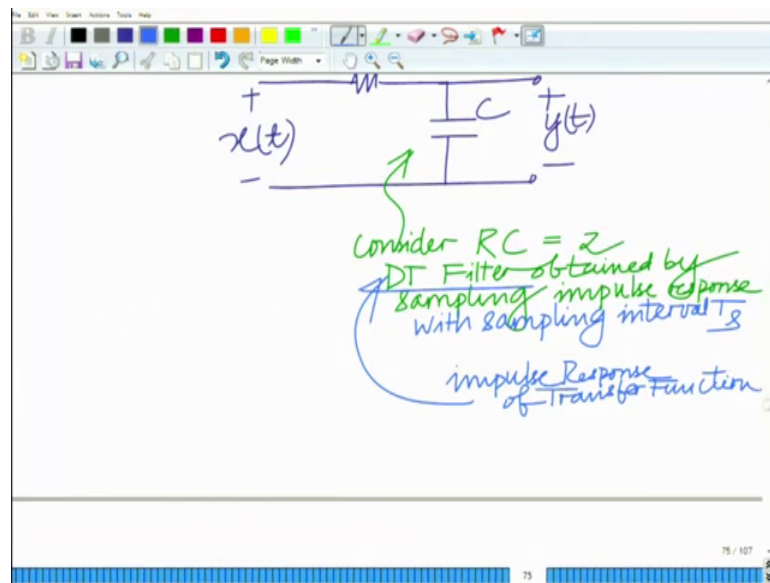 File Edit View Insert Actions Tools Help
B I
Page Width
+ C +
x(t) y(t)
- -
consider RC = 2
DT Filter obtained by
sampling impulse response
with sampling interval Ts
impulse Response
of Transfer Function
75 / 107
75